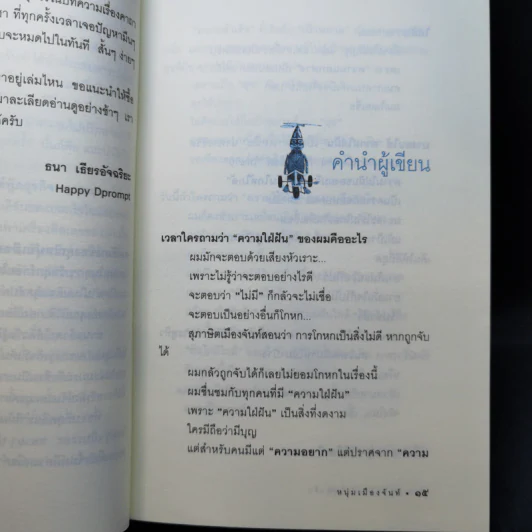 ที่ทุกครั้งเวลาเจอปัญหามึนๆ
จะหมดไปในทันที สั้นๆ ง่ายๆ
อยู่เล่มไหน ขอแนะนำให้ซื้อ
ละเลียดอ่านดูอย่างช้าๆ
ครับ
ธนา เธียรอัจฉริยะ
Happy Dprompt
คำนำผู้เขียน
เวลาใครถามว่า “ความใฝ่ฝัน” ของผมคืออะไร
ผมมักจะตอบด้วยเสียงหัวเราะ...
เพราะไม่รู้ว่าจะตอบอย่างไรดี
จะตอบว่า “ไม่มี” ก็กลัวจะไม่เชื่อ
จะตอบเป็นอย่างอื่นก็โกหก...
สุภาษิตเมืองจันท์สอนว่า การโกหกเป็นสิ่งไม่ดี หากถูกจับ
ได้
ผมกลัวถูกจับได้ก็เลยไม่ยอมโกหกในเรื่องนี้
ผมชื่นชมกับทุกคนที่มี “ความใฝ่ฝัน”
เพราะ “ความใฝ่ฝัน” เป็นสิ่งที่งดงาม
ใครมีถือว่ามีบุญ
แต่สำหรับคนมีแต่ “ความอยาก” แต่ปราศจาก “ความ
หนุ่มเมืองจันท์ • ๑๕